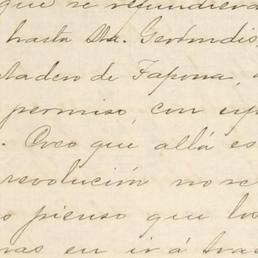 que se refundiera
hasta Sta. Gertrudis,
tadero de Fapona,
permiso, con
. Creo que allá es
revolución no se
o pienso que los
ras en ir á tra